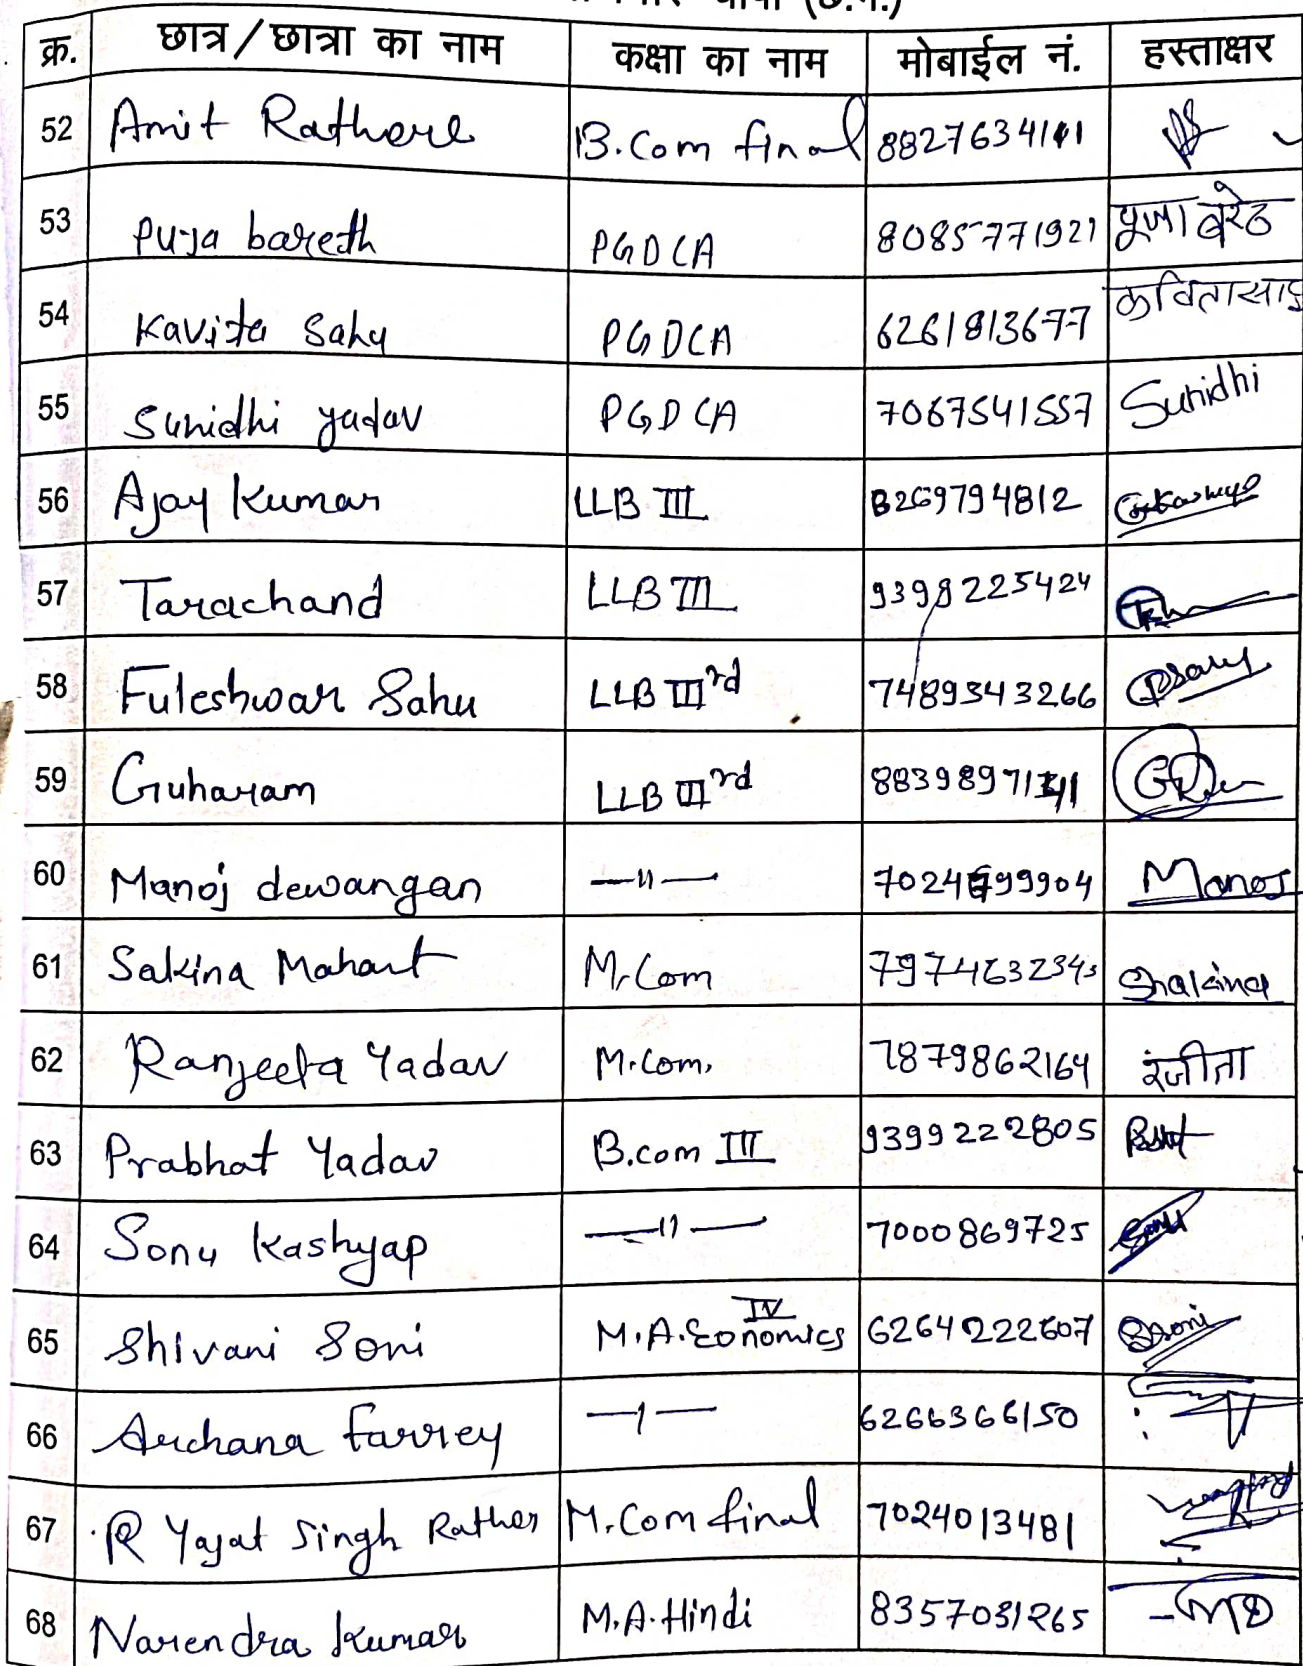 चांपा (छ.ग.)
क्र. छात्र/छात्रा का नाम कक्षा का नाम मोबाईल नं. हस्ताक्षर
52 Amit Rathore B.Com final 8827634141
53 Puja bareth PGDCA 8085771921 पूजा बरेठ
54 Kavita Sahu PGDCA 6261813677 कविता साहु
55 Sunidhi yadav PGDCA 7067541557 Sunidhi
56 Ajay Kumar LLB III 8269794812
57 Tarachand LLB III 9398225424
58 Fuleshwar Sahu LLB IIIrd 7489343266
59 Guharam LLB IIIrd
60 Manoj dewangan —11— Manoj
61 Sakina Mahant M.Com 7974632343 Shakina
62 Ranjeeta Yadav M.Com. 7879862164 रंजीता
63 Prabhat Yadav B.com III 9399222805
64 Sonu Kashyap —11— 7000869725 Sonu
65 Shivani Soni M.A.Economics IV 6264222607 SSoni
66 Archana farrey —1— 6266366150
67 R Yajat Singh Rather M.Com final 7024013481
68 Narendra Kumar M.A.Hindi 8357031265